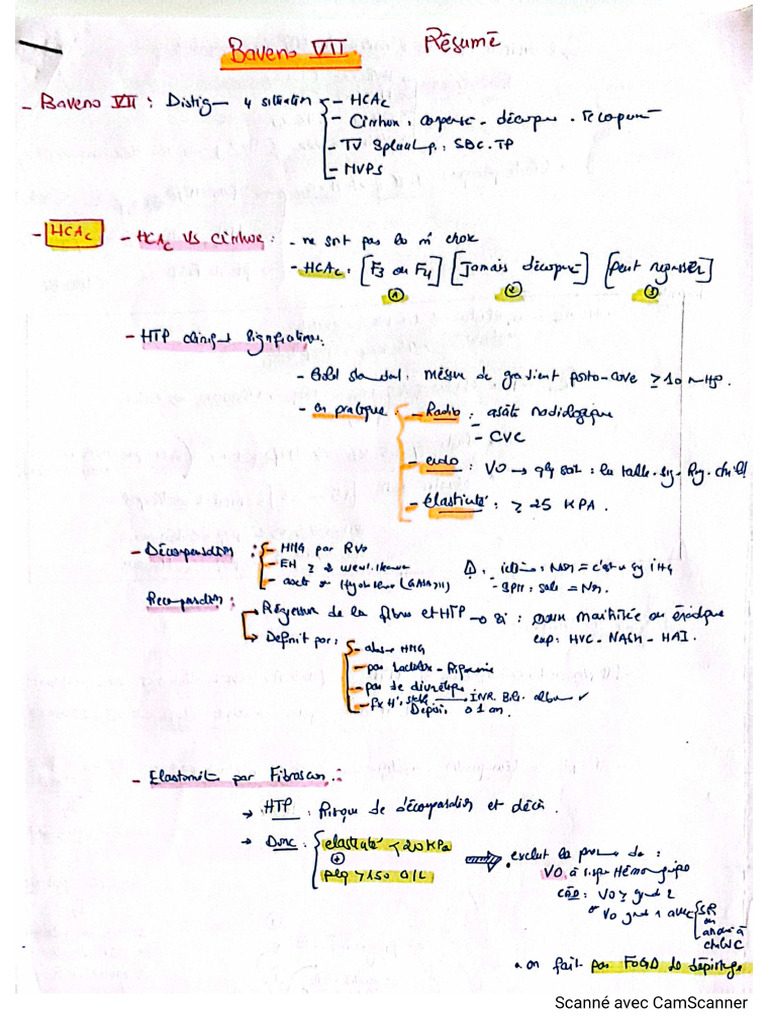 Baveno VII. Résumé
- Baveno VII : Disting 4 situation - HCAc
- Cirrhose, compensé - décompen - recompensé
- TV Splanch : SBC. TP
- MVPS
- HCAc - HCAc VS Cirrhose : - ne sont pas la m̂ chose
- HCAc : [F3 ou F4] [Jamais décompen] [peut régresser]
① ② ③
- HTP cliniq significative :
- Gold standard : mesure de gradient porto-cave ≥ 10 mmHg.
- en pratique : - Radio : ascite radiologique
- CVC
- endo : VO → qlq soit : la taille - sg - Rg - child
- Élasticité : ≥ 25 KPA.
- Décompensation : - HDG par RVO
- EH ≥ 2
- ascite
Recompensation :
Régression de la fibrose et HTP → si : maitrisée ou éradiquée
exp : HVC - NASH - HAI.
Definit par :
- absence HDG
- pas Lactulose - Rifaximine
- pas de diurétique
- fx H. stable → INR. Bil. albu ✓
Depuis 1 an.
- Elastométrie par Fibroscan :
→ HTP : Risque de décompensation et décès.
→ Donc : élasticité < 20 KPa
+
plq > 150 G/L
exclut la présence de :
VO à risque Hémorragique
CÀD : VO ≥ grade 2
VO grade 1 avec SR
ou
child C
on fait pas FOGD de dépistage
Scanné avec CamScanner